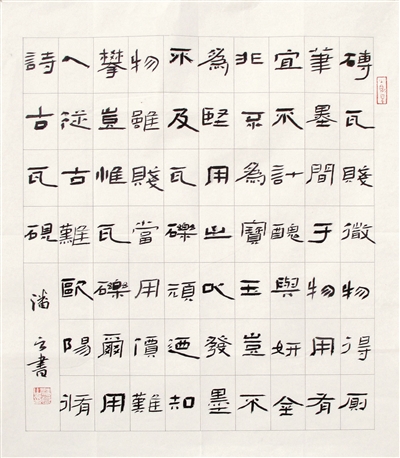 磚瓦賤微物得廁
筆墨間于物用有
宜不計醜與妍金
非不為寶玉豈不
為堅用之以發墨
不及瓦礫頑迺知
物雖賤當用價難
攀豈惟瓦礫爾用
人從古難歐陽脩
詩古瓦硯
潘書